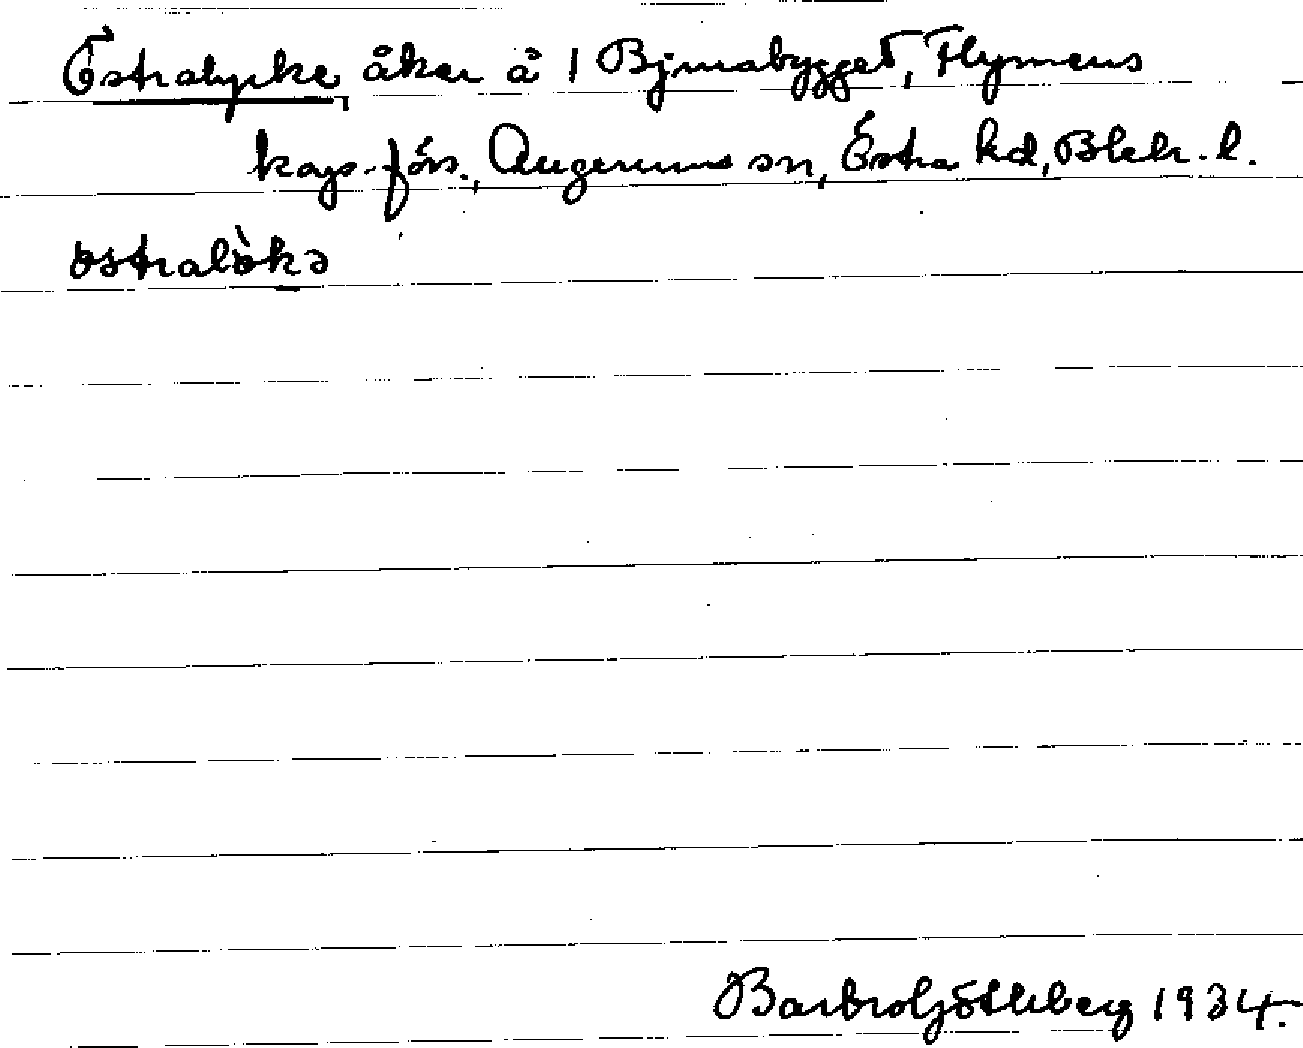 Östralycke, åker å 1 Bjmrabygget, Flymens
kaps.förs., Augerums sn, Östra hd, Blek. l.
östralök̀ə
Barbro Götherberg 1934.